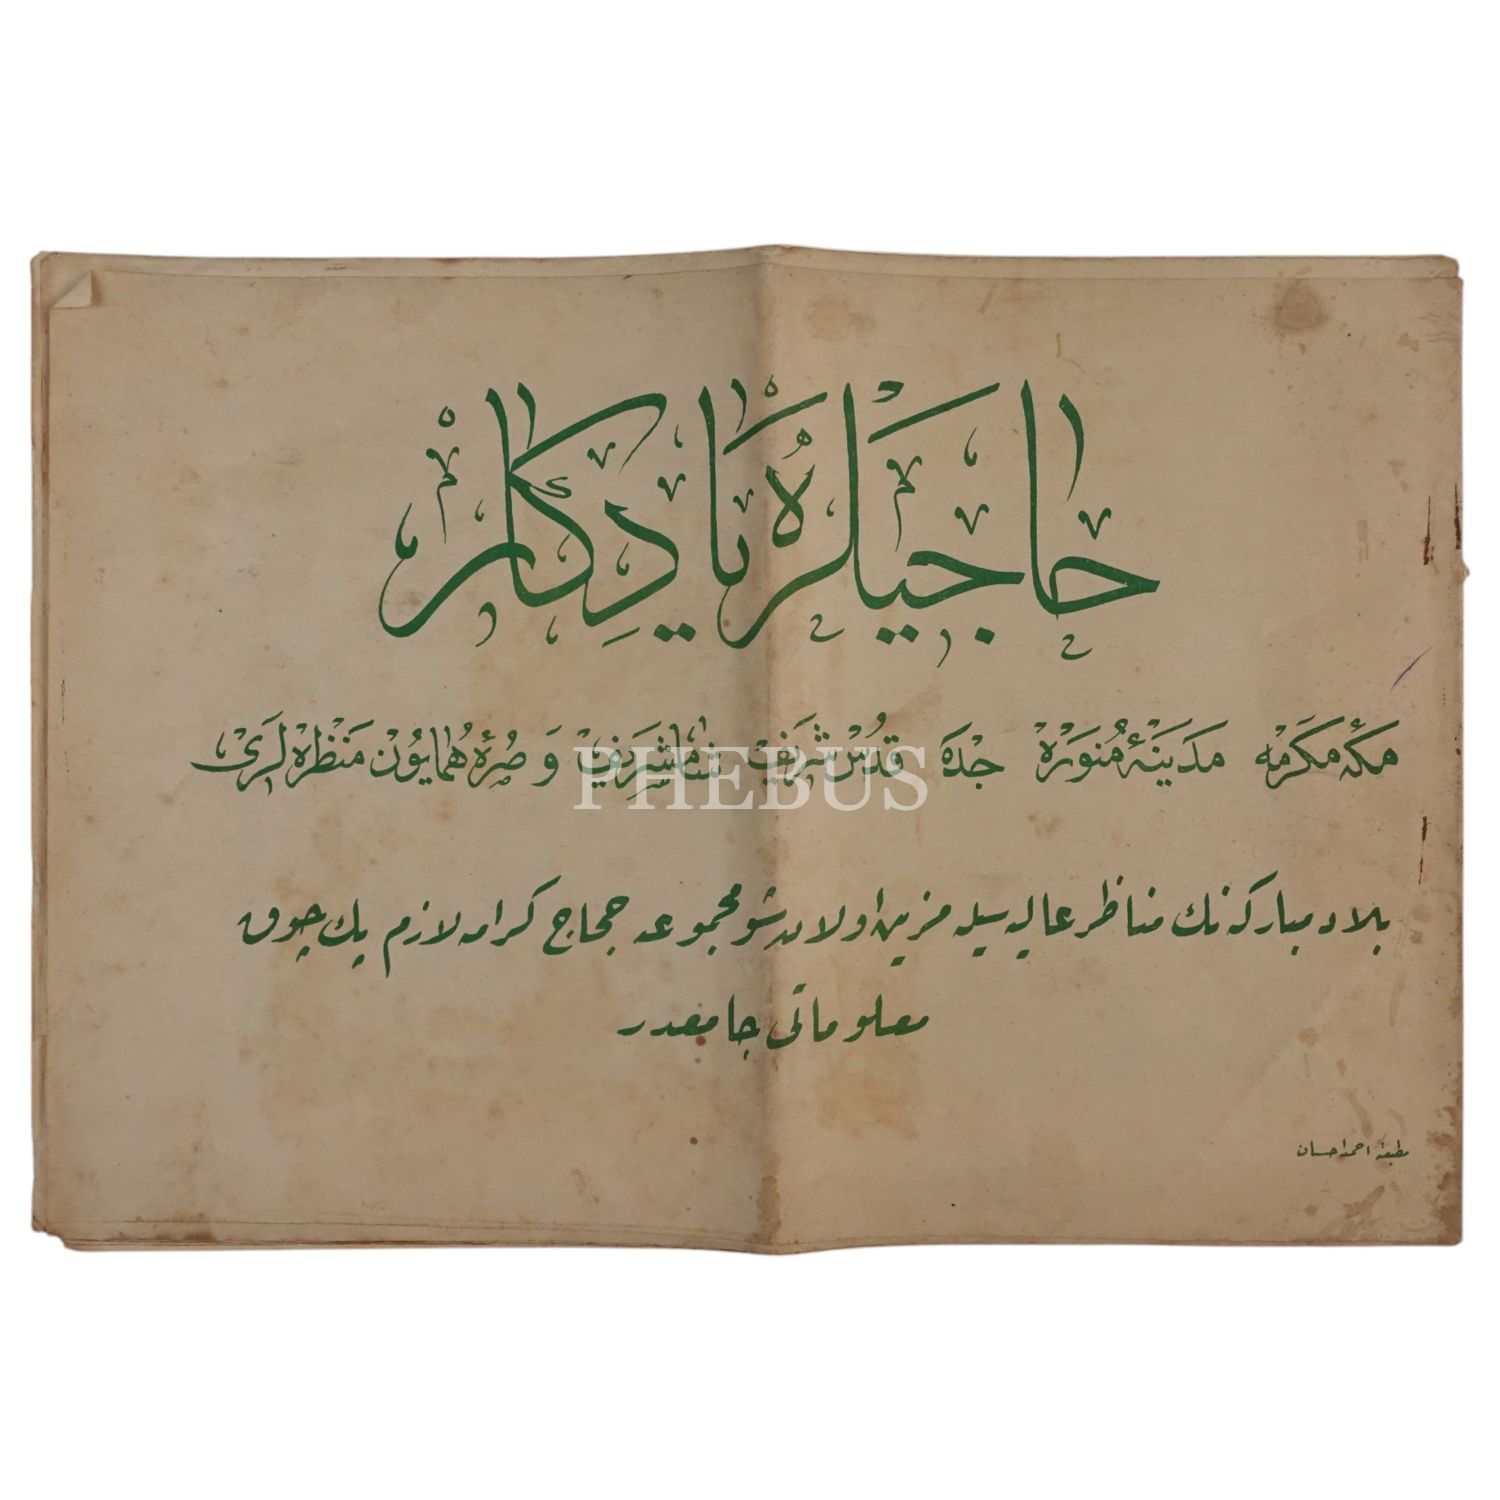 حاجيلره يادگار
مكهٔ مكرمه مدينهٔ منوره جده قدس شريف شام شريف و صرهٔ همايون منظره لرى
PHEBUS
بلاد مباركه نك مناظر عاليه سيله مزين اولان شو مجموعه حجاج كرامه لازم پك چوق
معلوماتى جامعدر
مطبعهٔ احمد احسان